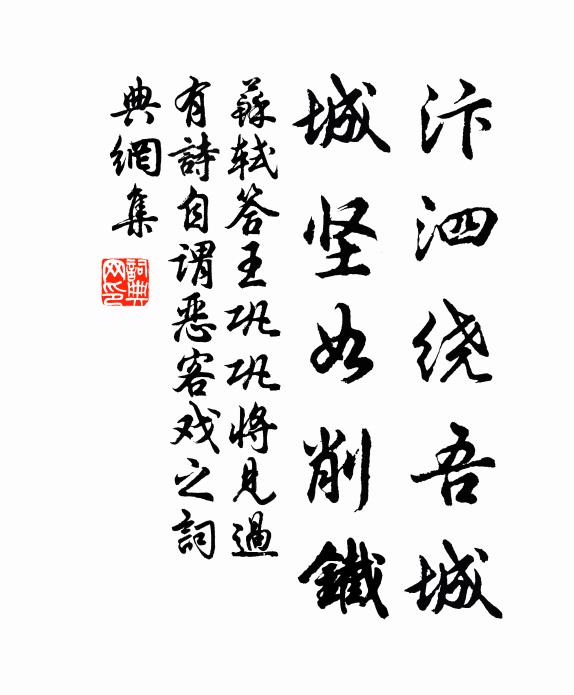 汴泗绕吾城
城坚如削鐵
蘇轼答王巩巩将見過
有詩自谓恶客戏之詞
典網集
詞典网印